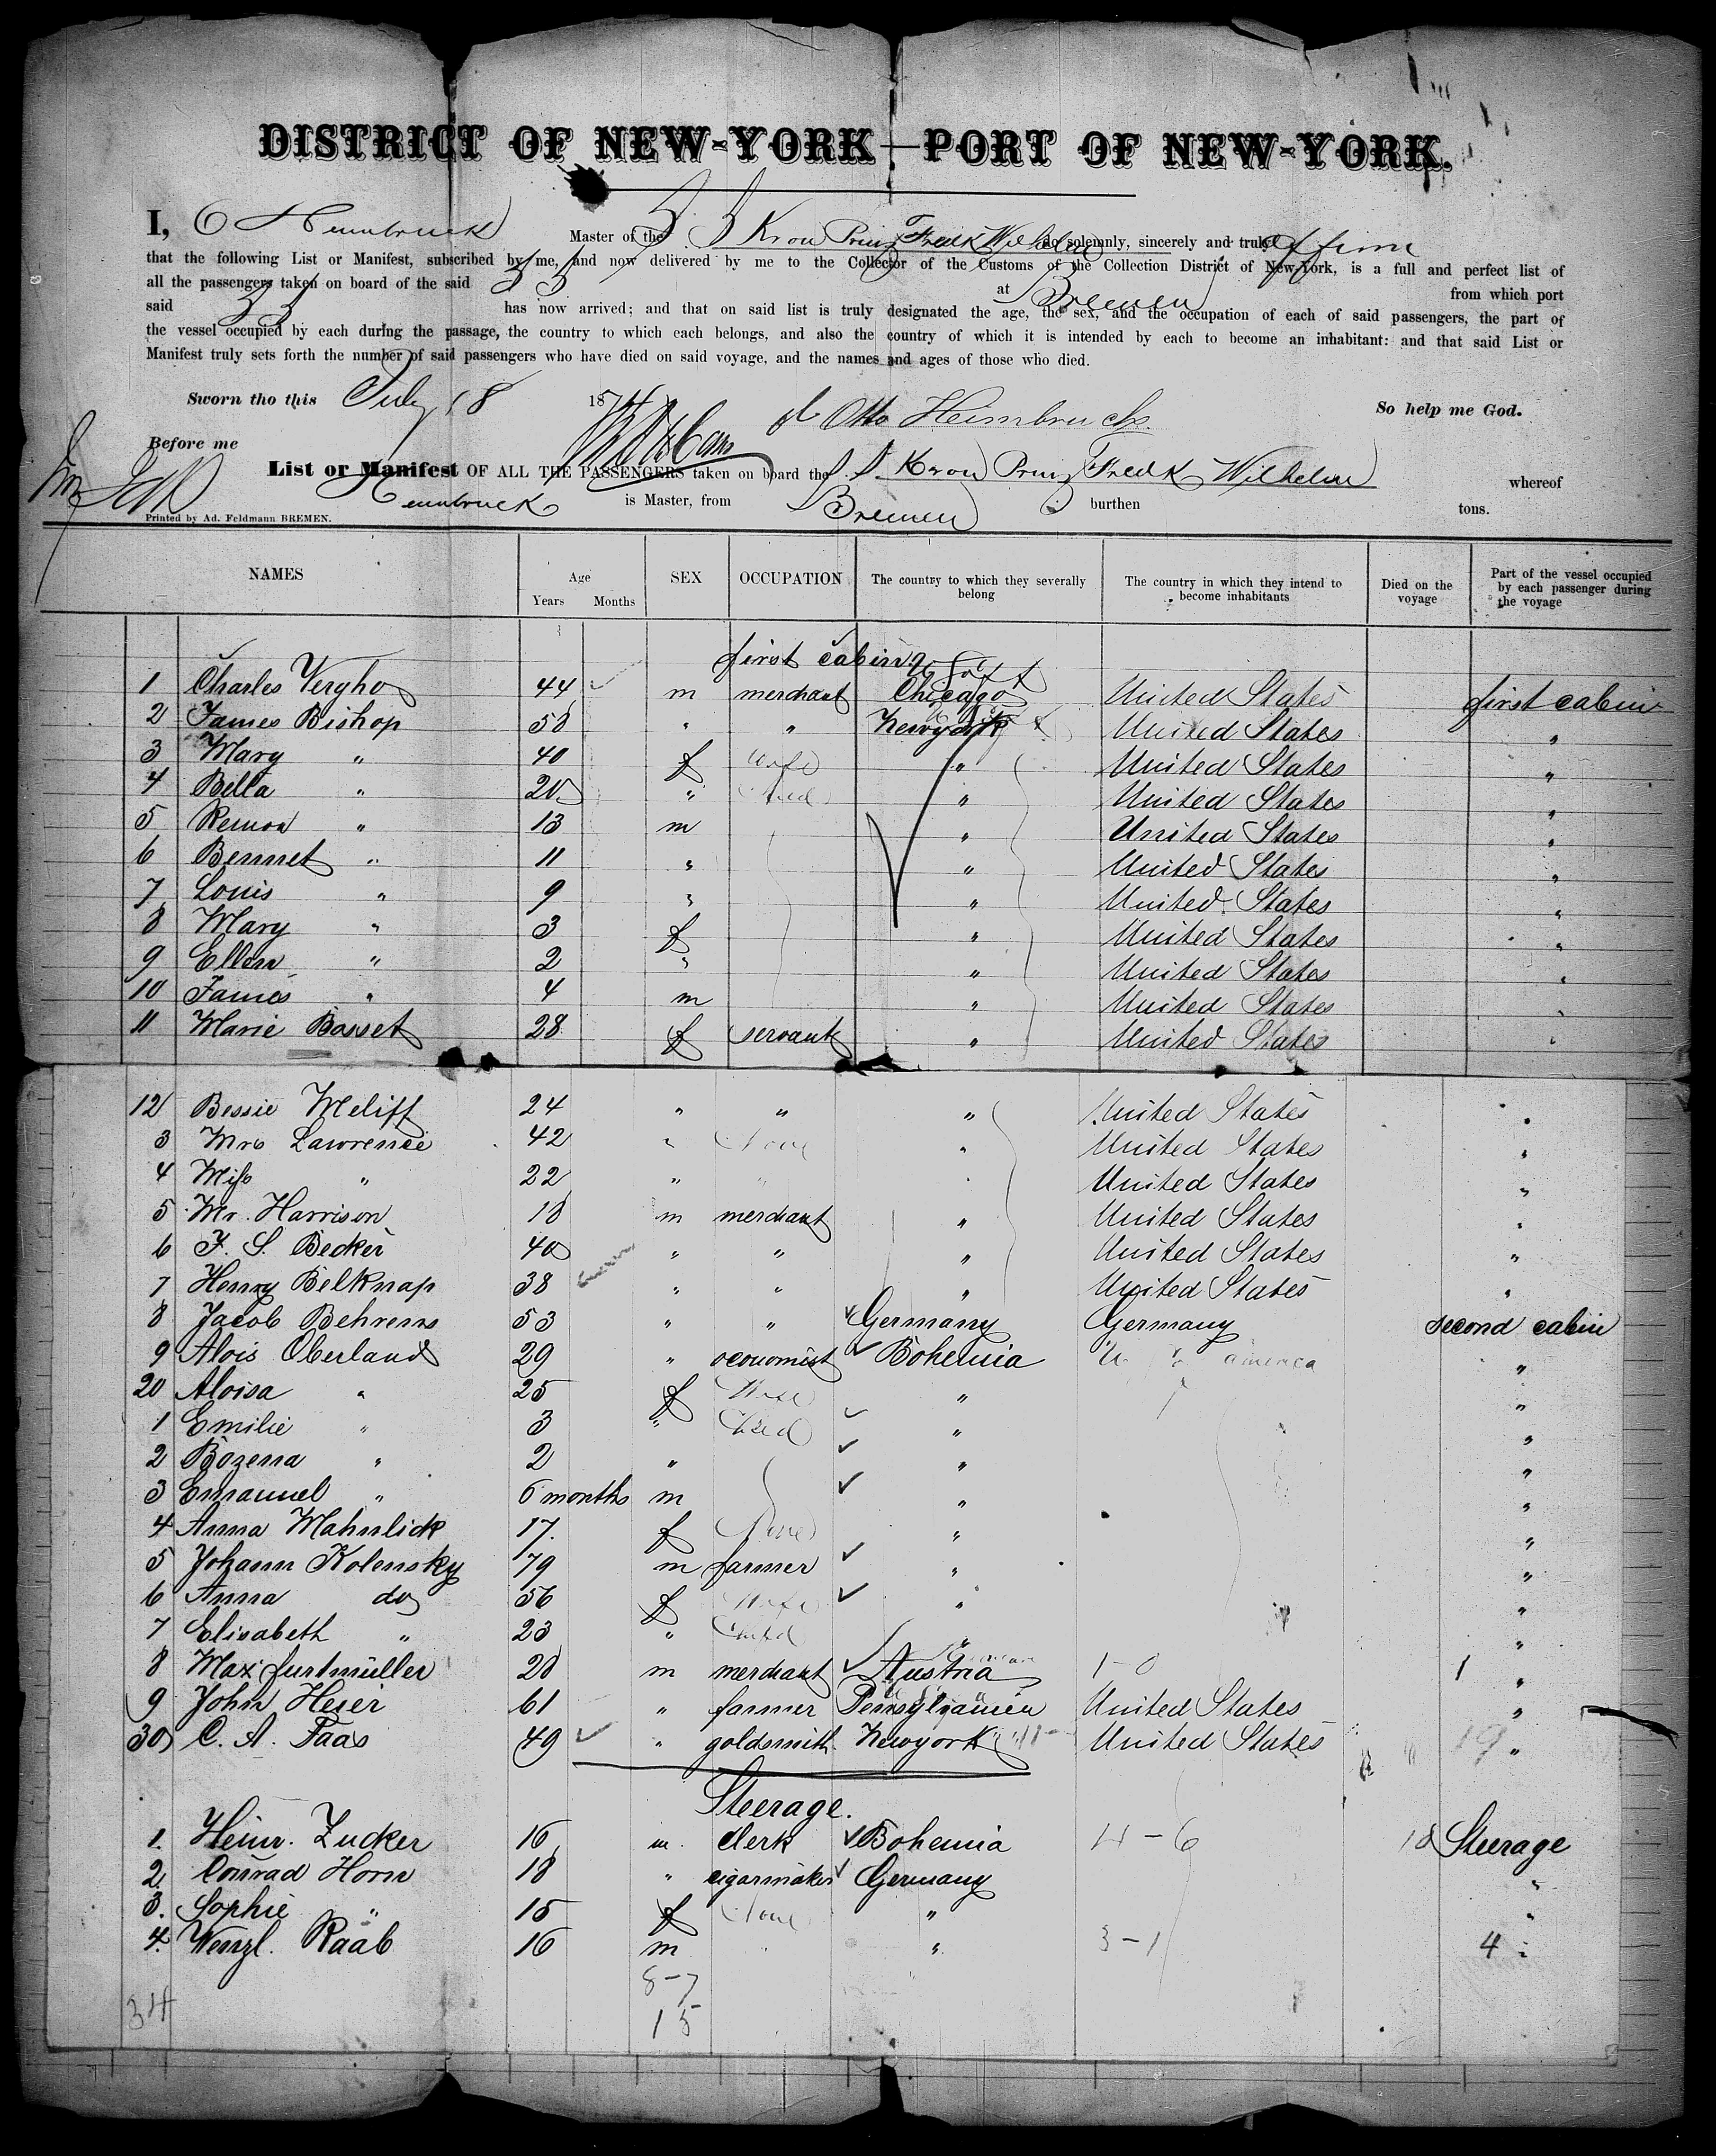 DISTRICT OF NEW-YORK—PORT OF NEW-YORK.
I, O Heimbruck Master of the S. S Kron Prinz Fredk Wilhelm do solemnly, sincerely and truly affirm
that the following List or Manifest, subscribed by me, and now delivered by me to the Collector of the Customs of the Collection District of New-York, is a full and perfect list of
all the passengers taken on board of the said SS at Bremen from which port
said SS has now arrived; and that on said list is truly designated the age, the sex, and the occupation of each of said passengers, the part of
the vessel occupied by each during the passage, the country to which each belongs, and also the country of which it is intended by each to become an inhabitant: and that said List or
Manifest truly sets forth the number of said passengers who have died on said voyage, and the names and ages of those who died.
Sworn tho this July 18 187 Otto Heimbruch. So help me God.
Before me
List or Manifest OF ALL THE PASSENGERS taken on board the S. S. Kron Prinz Fredk Wilhelm whereof
Heimbruck is Master, from Bremen burthen tons.
Printed by Ad. Feldmann BREMEN.
NAMES Age Years Months SEX OCCUPATION The country to which they severally belong The country in which they intend to become inhabitants Died on the voyage Part of the vessel occupied by each passenger during the voyage
first cabin
1 Charles Vergho 44 m merchant Chicago United States first cabin
2 James Bishop 50 " " Newyork United States "
3 Mary " 40 f Wife " United States "
4 Bella " 20 " Child " United States "
5 Remon " 13 m " United States "
6 Bennet " 11 " " United States "
7 Louis " 9 " " United States "
8 Mary " 3 f " United States "
9 Ellen " 2 " " United States "
10 James " 4 m " United States "
11 Marie Bosset 28 f servant " United States "
12 Bessie Meliff 24 " " " United States "
3 Mrs Lawrence 42 " None " United States "
4 Miss " 22 " " " United States "
5 Mr. Harrison 18 m merchant " United States "
6 F. S. Becker 40 " " " United States "
7 Henry Belknap 38 " " " United States "
8 Jacob Behrens 53 " " Germany Germany second cabin
9 Alois Oberland 29 " oconomist Bohemia america "
20 Aloisa " 25 f Wife " "
1 Emilie " 3 " Child " "
2 Bozena " 2 " " "
3 Emanuel " 6 months m " "
4 Anna Mahnlick 17. f None " "
5 Johann Kolensky 79 m farmer " "
6 Anna do 56 f Wife " "
7 Elisabeth " 23 " Child " "
8 Max Furtmüller 28 m merchant Austria 1-0 1 "
9 John Heier 61 " farmer Pensylvanien United States "
30 C. A. Faas 49 " goldsmith Newyork United States 19 "
Steerage.
1. Heinr. Zucker 16 m. clerk Bohemia 4-6 Steerage
2. Conrad Horn 18 " cigarmaker Germany "
3. Sophie " 15 f None " "
4. Wenzl. Raab 16 m " " 3-1 4 "
8-7
34 15